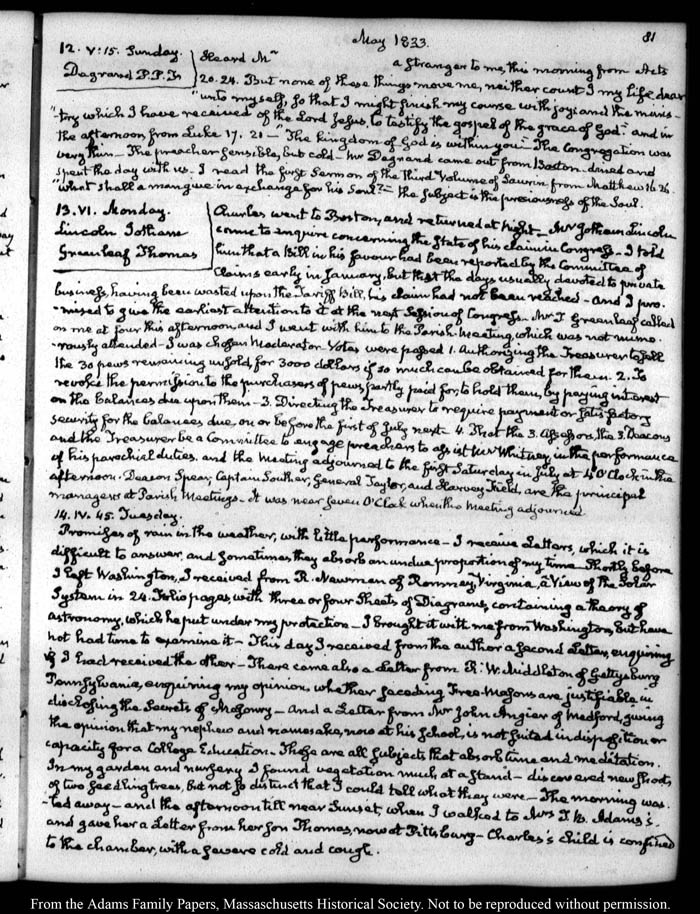 May 1833.
81
12. V:15. Sunday.
Degrand P.P.F.
Heard Mr                a stranger to me, this morning from Acts
20. 24. But none of these things move me, neither count I my life dear
"unto myself, so that I might finish my course with joy, and the minis-
"-try which I have received of the Lord Jesus, to testify the gospel of the grace of God" and in
the afternoon from Luke 17. 21 — "The kingdom of God is within you" The Congregation was
very thin — The preacher sensible, but cold — Mr Degrand came out from Boston, dined and
spent the day with us. I read the first Sermon of the third Volume of Saurin from Matthew 16. 26.
"What shall a man give in exchange for his Soul?" — the subject is the preciousness of the Soul.
13. VI. Monday.
Lincoln Jotham
Greenleaf Thomas
Charles went to Boston, and returned at Night — Mr Jotham Lincoln
came to enquire concerning the State of his claim in Congress — I told
him that a Bill in his favour had been reported by the Committee of
Claims early in January, but that the days usually devoted to private
business, having been wasted upon the Tariff Bill, his claim had not been reached — and I pro-
-mised to give the earliest attention to it at the next Session of Congress — Mr T. Greenleaf called
on me at four this afternoon, and I went with him to the Parish Meeting, which was not nume-
-rously attended — I was chosen Moderator. Votes were passed 1. Authorizing the Treasurer to sell
the 30 pews remaining unsold, for 3000 dollars if so much can be obtained for them. 2. To
revoke the permission to the purchasers of pews, partly paid for, to hold them, by paying interest
on the balances due upon them — 3. Directing the Treasurer to require payment or satisfactory
security for the balances due, on or before the first of July next — 4. That the 3. Assessors, the 3. Deacons
and the Treasurer be a Committee to engage preachers to assist Mr Whitney, in the performance
of his parochial duties, and the Meeting adjourned to the first Saturday in July at 4 O'Clock in the
afternoon. Deacon Spear, Captain Souther, General Taylor, and Harvey Field, are the principal
managers at Parish Meetings. It was near seven O'Clock when the Meeting adjourned.
14. IV. 45. Tuesday.
Promises of rain in the weather, with little performance — I receive Letters, which it is
difficult to answer, and sometimes they absorb an undue proportion of my time — Shortly before
I left Washington, I received from R. Newman of Romney, Virginia, a View of the Solar
System in 24 Folio pages, with three or four Sheets of Diagrams, containing a theory of
astronomy, which he put under my protection — I brought it with me from Washington, but have
not had time to examine it — This day I received from the author a second Letter, enquiring
if I had received the other — There came also a Letter from R. W. Middleton of Gettysburg
Pennsylvania, enquiring my opinion, whether seceding Free-Masons are justifiable in
disclosing the Secrets of Masonry — And a Letter from Mr John Angier of Medford, giving
the opinion that my nephew and namesake, now at his School, is not suited in disposition or
capacity for a College Education — These are all subjects that absorb time and meditation.
In my garden and nursery I found vegetation much at a stand — discovered new shoots
of two seedling trees, but not so distinct that I could tell what they were — The morning was-
-ted away — and the afternoon till near Sunset, when I walked to Mrs T. B. Adams's,
and gave her a Letter from her son Thomas, now at Pittsburg — Charles's child is confined
to the chamber, with a severe cold and cough.
From the Adams Family Papers, Massachusetts Historical Society. Not to be reproduced without permission.